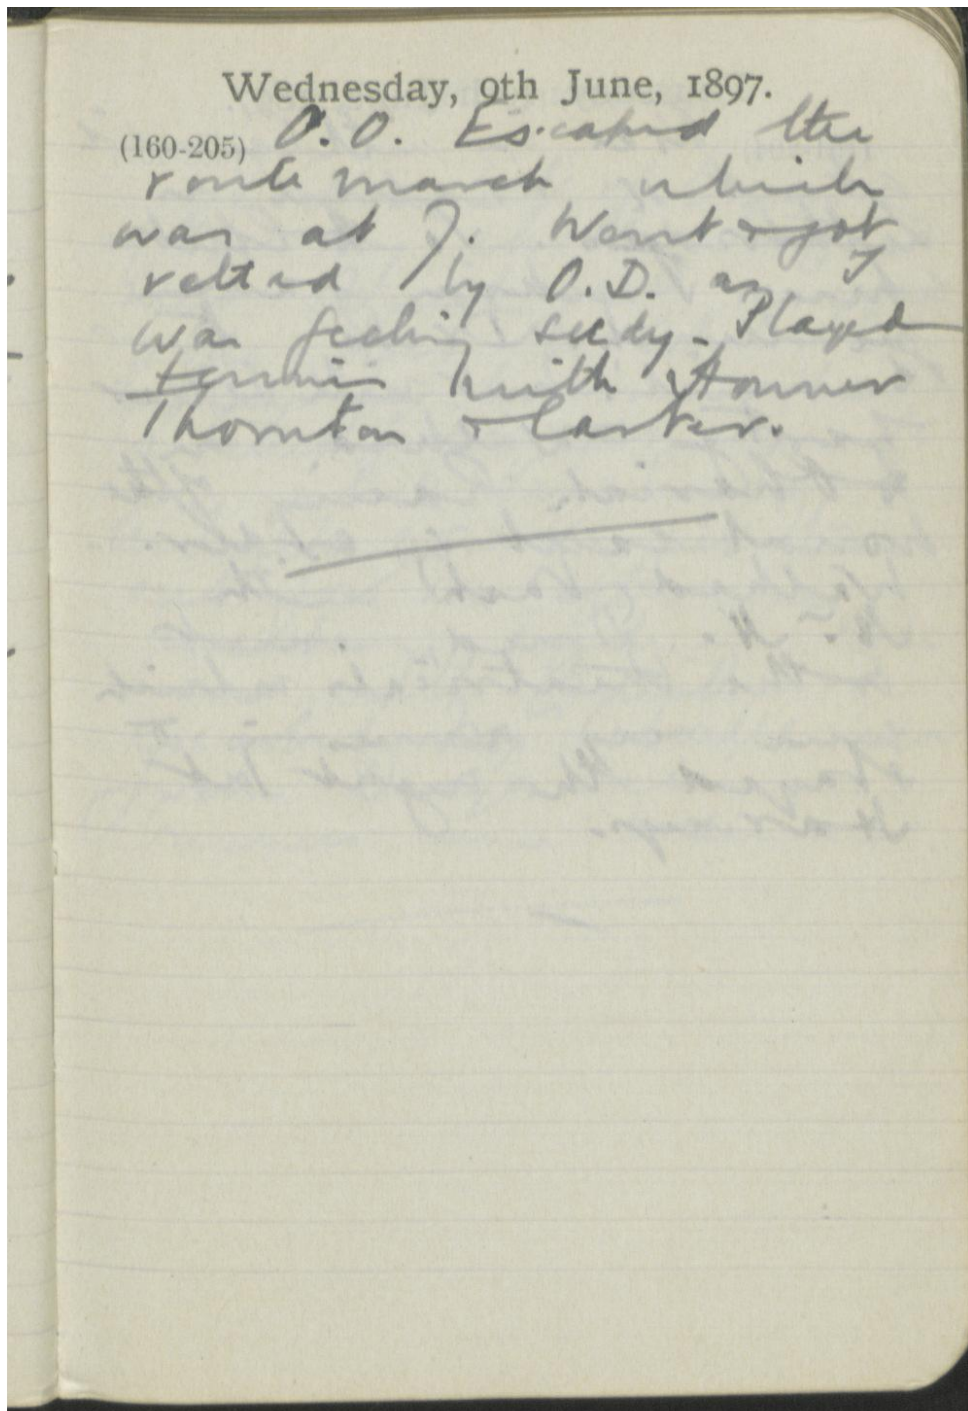 Wednesday, 9th June, 1897.
(160-205) O.O. Escaped the
route march which
was at 7. Went & got
vetted by O.D. as I
was feeling seedy. Played
tennis with
Thornton & Carter.